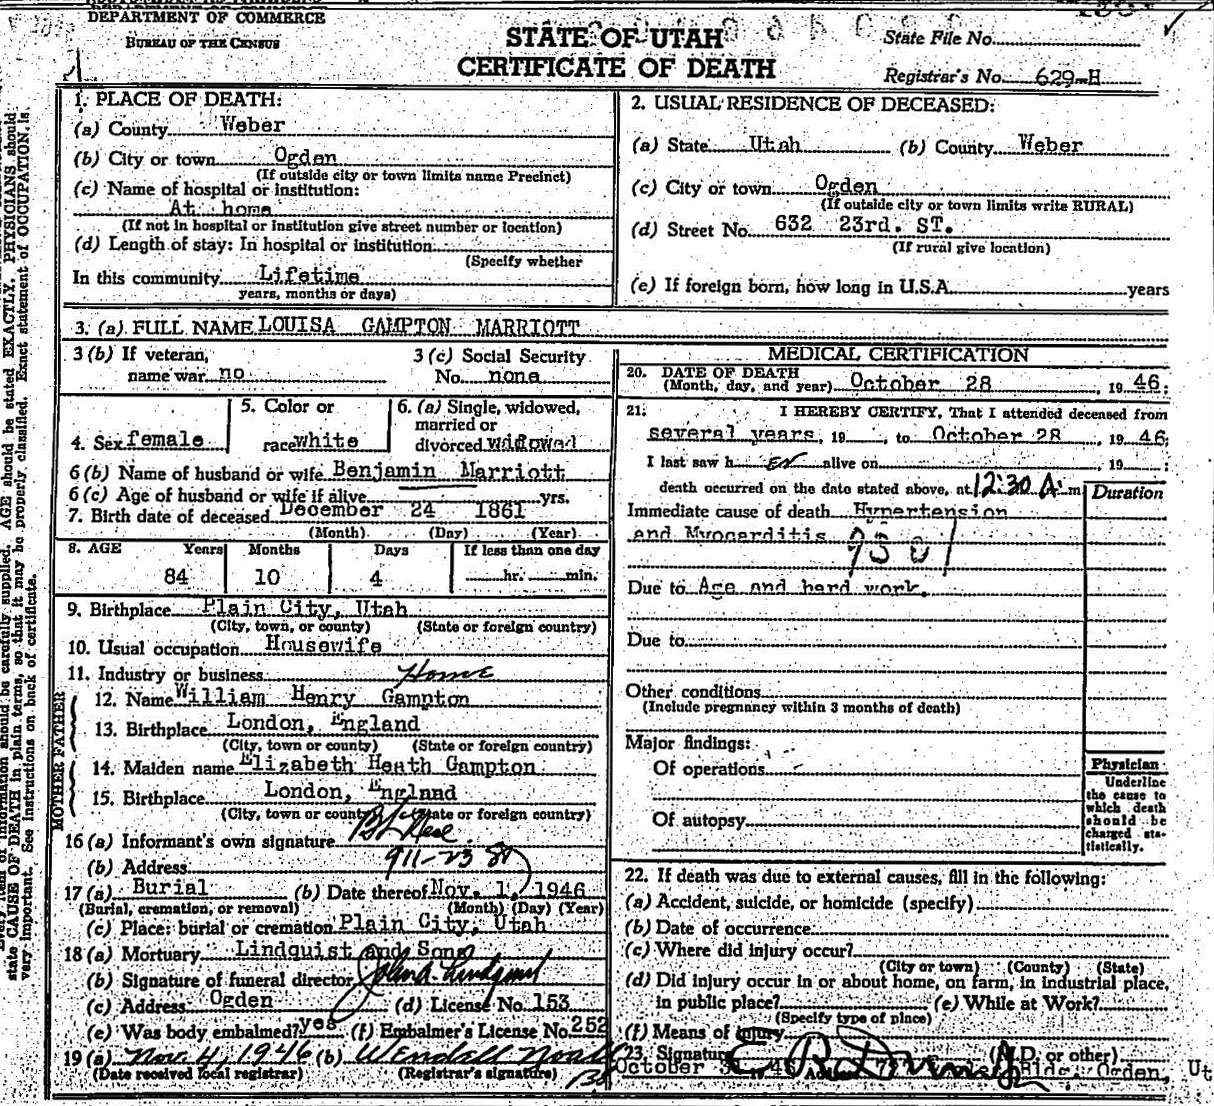 DEPARTMENT OF COMMERCE
BUREAU OF THE CENSUS
STATE OF UTAH
CERTIFICATE OF DEATH
State File No.
Registrar's No. 629-H
1. PLACE OF DEATH:
(a) County Weber
(b) City or town Ogden
(If outside city or town limits name Precinct)
(c) Name of hospital or institution:
At home
(If not in hospital or institution give street number or location)
(d) Length of stay: In hospital or institution
(Specify whether
In this community Lifetime
years, months or days)
2. USUAL RESIDENCE OF DECEASED:
(a) State Utah (b) County Weber
(c) City or town Ogden
(If outside city or town limits write RURAL)
(d) Street No. 632 23rd. ST.
(If rural give location)
(e) If foreign born, how long in U.S.A. years
3. (a) FULL NAME LOUISA GAMPTON MARRIOTT
3 (b) If veteran, 3 (c) Social Security
name war no No. none
5. Color or 6. (a) Single, widowed,
married or
4. Sex female race white divorced widowed
6 (b) Name of husband or wife Benjamin Marriott
6 (c) Age of husband or wife if alive yrs.
7. Birth date of deceased December 24 1861
(Month) (Day) (Year)
8. AGE Years Months Days If less than one day
84 10 4 hr. min.
9. Birthplace Plain City, Utah
(City, town, or county) (State or foreign country)
10. Usual occupation Housewife
11. Industry or business Home
FATHER
12. Name William Henry Gampton
13. Birthplace London, England
(City, town or county) (State or foreign country)
MOTHER
14. Maiden name Elizabeth Heath Gampton
15. Birthplace London, England
(City, town or county) (State or foreign country)
16 (a) Informant's own signature
(b) Address 911-23 St
17 (a) Burial (b) Date thereof Nov. 1, 1946
(Burial, cremation, or removal) (Month) (Day) (Year)
(c) Place: burial or cremation Plain City, Utah
18 (a) Mortuary Lindquist and Sons
(b) Signature of funeral director John A Lindquist
(c) Address Ogden (d) License No. 153
(e) Was body embalmed? yes (f) Embalmer's License No. 252
19 (a) Nov. 4, 1946 (b) Wendell
(Date received local registrar) (Registrar's signature)
MEDICAL CERTIFICATION
20. DATE OF DEATH
(Month, day, and year) October 28, 1946;
21. I HEREBY CERTIFY, That I attended deceased from
several years, 19 , to October 28, 1946;
I last saw h er alive on , 19 ;
death occurred on the date stated above, at 12:30 A. m.
Duration
Immediate cause of death Hypertension
and Myocarditis
Due to Age and hard work.
Due to
Other conditions
(Include pregnancy within 3 months of death)
Major findings:
Of operations
Of autopsy
Physician
Underline
the cause to
which death
should be
charged sta-
tistically.
22. If death was due to external causes, fill in the following:
(a) Accident, suicide, or homicide (specify)
(b) Date of occurrence
(c) Where did injury occur?
(City or town) (County) (State)
(d) Did injury occur in or about home, on farm, in industrial place,
in public place? (e) While at Work?
(Specify type of place)
(f) Means of injury
23. Signature (M.D. or other)
October Bldg. Ogden, Ut
AGE should be stated EXACTLY. PHYSICIANS should
state CAUSE OF DEATH in plain terms, so that it may be properly classified. Exact statement of OCCUPATION is
very important. See instructions on back of certificate.